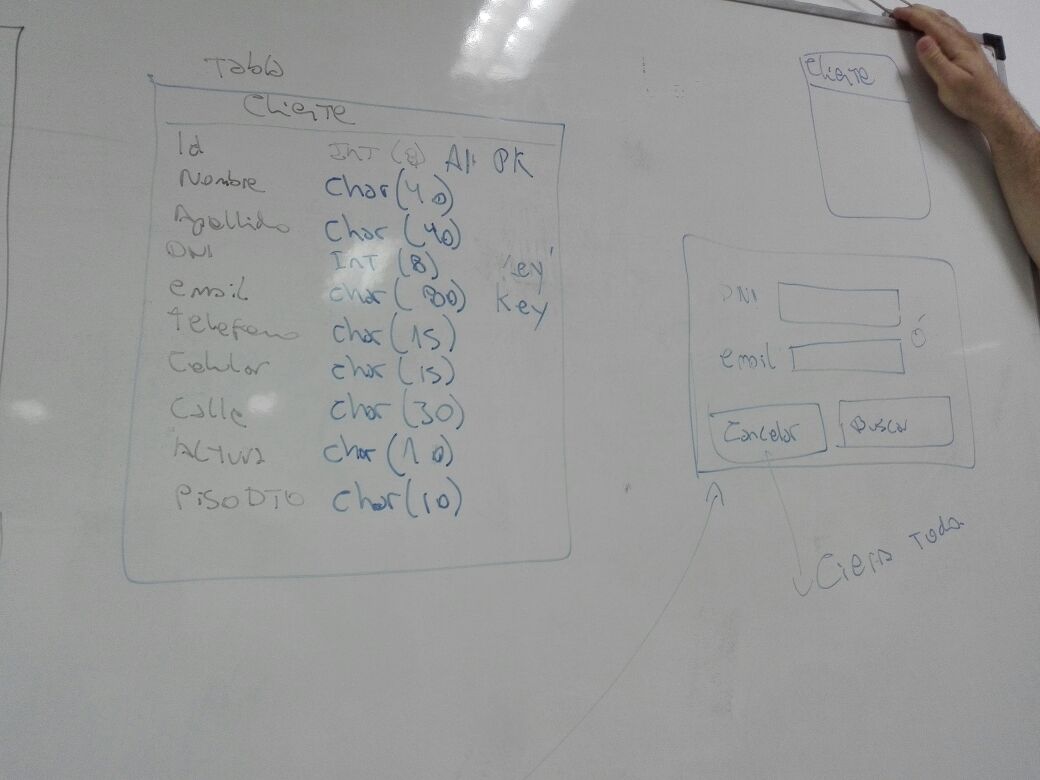 Tabla
Cliente
Id Int (8) AI PK
Nombre Char(40)
Apellido Char (40)
DNI Int (8) key
email char (80) key
telefono char(15)
Celular char(15)
Calle Char(30)
Altura char(10)
PisoDTO char(10)
Cliente
DNI
ó
email
Cancelar Buscar
Cierra Todo